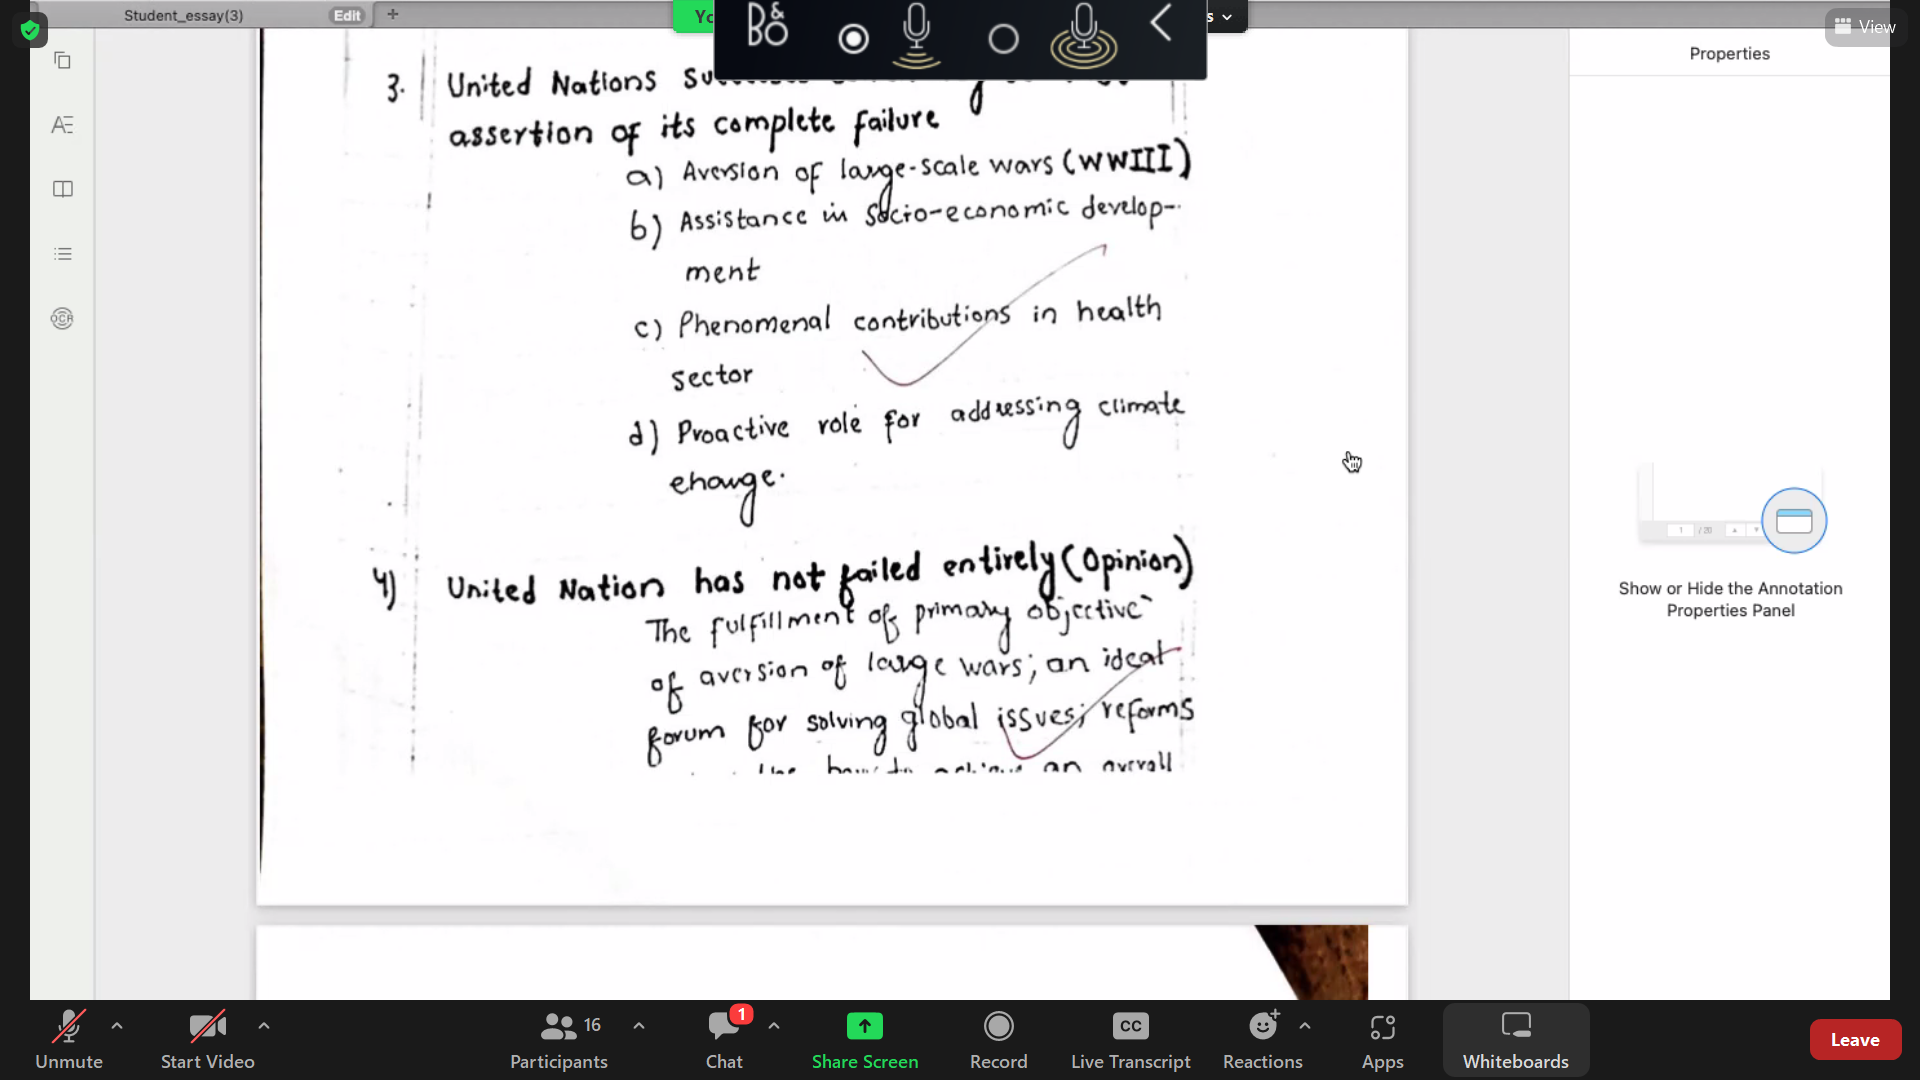 Student_essay(3) Edit +
View
Properties
3. United Nations
assertion of its complete failure
a) Aversion of large-scale wars (WWIII)
b) Assistance in Socio-economic develop-
ment
c) Phenomenal contributions in health
sector
d) Proactive role for addressing climate
change.
4) United Nation has not failed entirely (Opinion)
The fulfillment of primary objective
of aversion of large wars; an ideal
forum for solving global issues; reforms
an overall
B&O
OCR
Show or Hide the Annotation
Properties Panel
Unmute
Start Video
16
Participants
1
Chat
Share Screen
Record
CC
Live Transcript
Reactions
Apps
Whiteboards
Leave